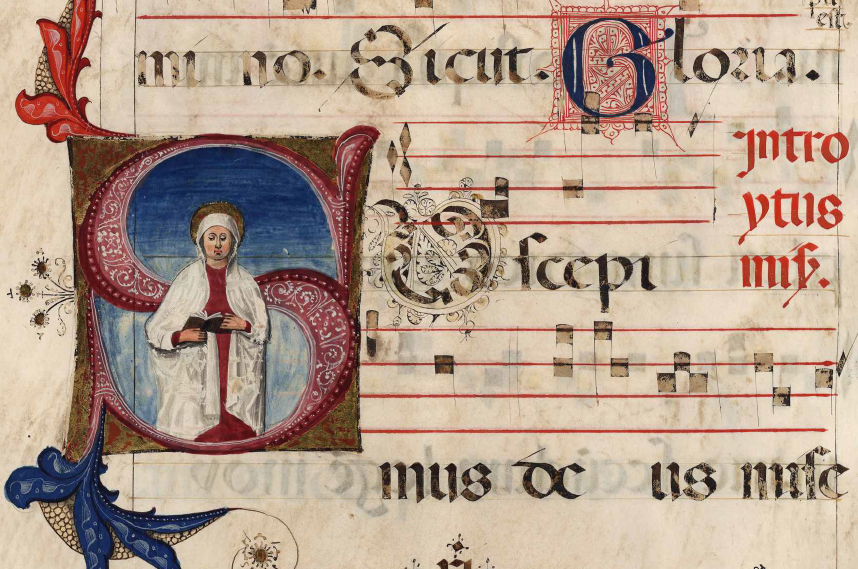 mino. Sicut. Gloria.
Intro
ytus
miss.
Suscepi
mus de us mise